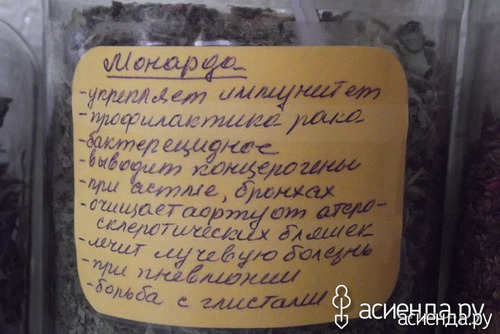 Монарда
-укрепляет иммунитет
-профилактика рака
-бактерецидное
-выводит концерогены
-при астме, бронхах
-очищает аорту от атеро-
склеротических бляшек
-лечит лучевую болезнь
-при пневмонии
-борьба с глистами
асиенда.ру
асиенда.ру